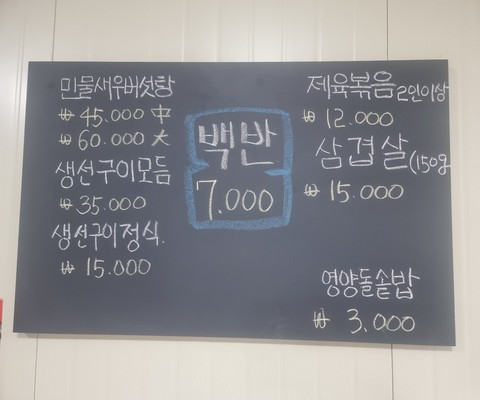 민물새우버섯탕
₩ 45.000 中
₩ 60.000 大
생선구이모듬
₩ 35.000
생선구이정식.
₩ 15.000
백반
7.000
제육볶음 2인이상
₩ 12.000
삼겹살(150g
₩ 15.000
영양돌솥밥
₩ 3.000